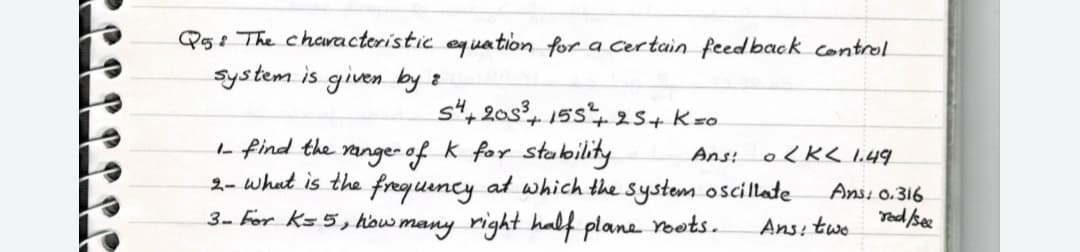 Q5: The characteristic equation for a certain feedback control
system is given by :
s⁴+ 20s³+ 15s²+ 2s+ K=0
1- find the range of K for stability Ans: 0<K< 1.49
2- what is the frequency at which the system oscillate Ans: 0.316 rad/sec
3- For K=5, how many right half plane roots. Ans: two